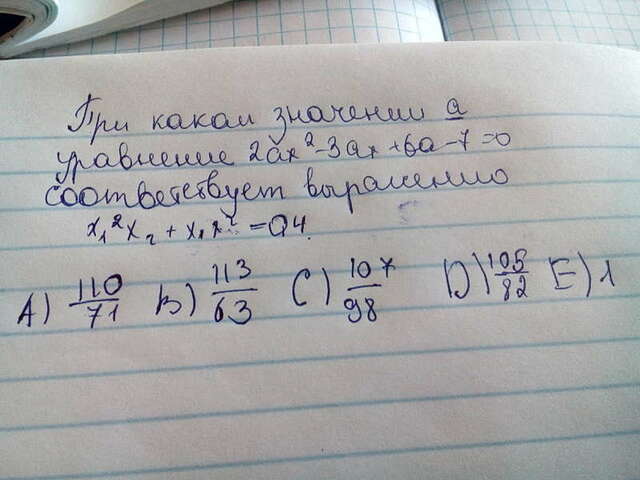 При каком значении a
уравнение 2ax²-3ax+6a-7=0
соответствует выражению
x₁²x₂ + x₁x₂² = 0,4.
A) 110/71 B) 113/63 C) 107/98 D) 105/82 E) 1